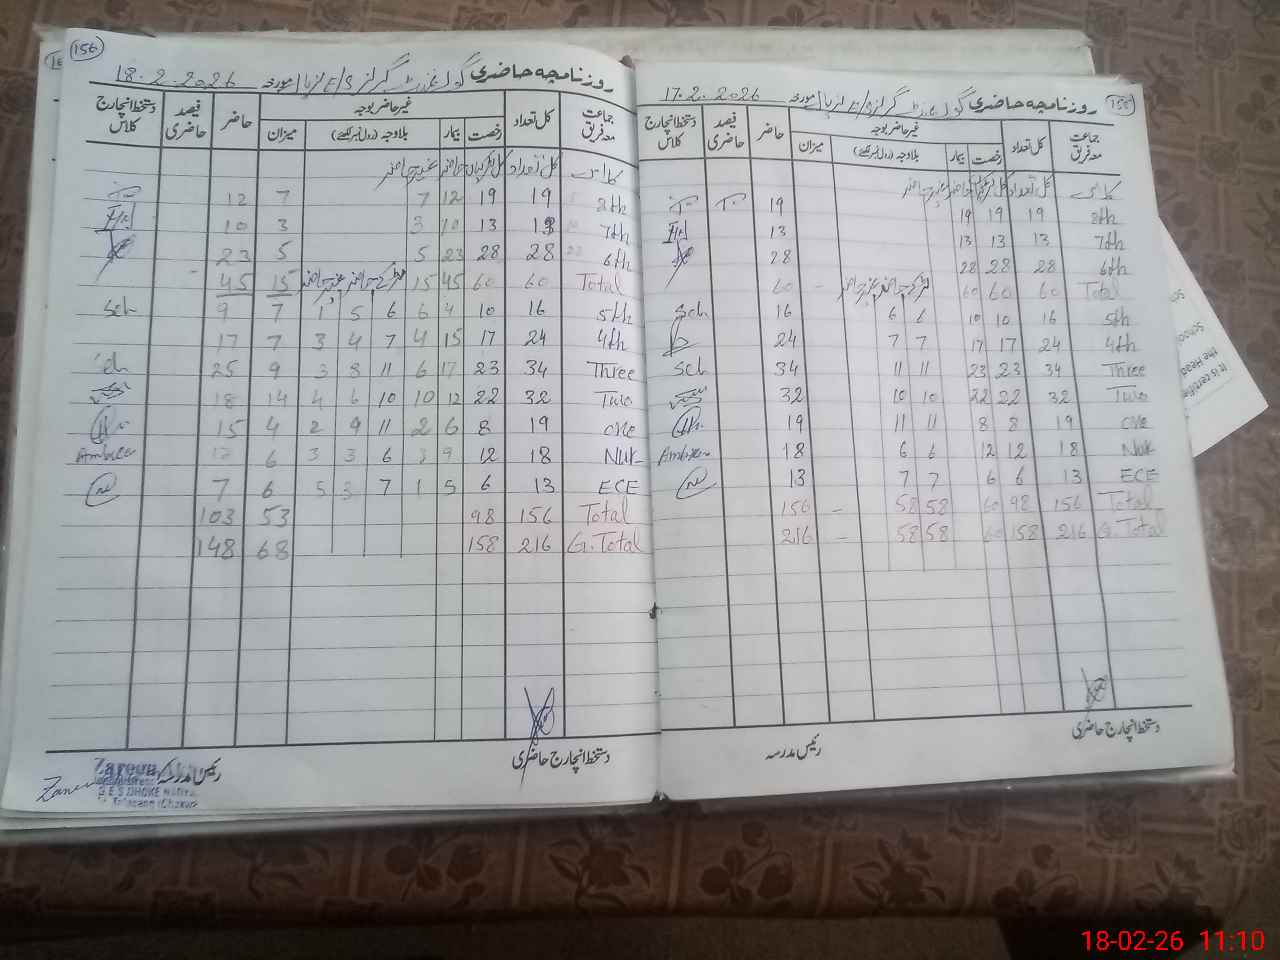 156
روزنامچہ حاضری گورنمنٹ گرلز E/S لنڈیا مورخہ 18.2.2026
جماعت معہ فریق کل تعداد غیر حاضر بوجہ حاضر فیصد حاضری دستخط انچارج کلاس
رخصت بیمار بلاوجہ (رول نمبر لکھیے) میزان
کلاس کل تعداد کل لڑکیاں حاضر غیر حاضر
8th 19 19 12 7 7 12
7th 13 13 10 3 3 10
6th 28 28 23 5 5 23
Total 60 60 45 15 لڑکے حاضر غیر حاضر 15 45
5th 16 10 4 6 6 5 1 7 9 Sch
4th 24 17 15 4 7 4 3 7 17
Three 34 23 17 6 11 8 3 9 25 Sch
Two 32 22 12 10 10 6 4 14 18
one 19 8 6 2 11 9 2 4 15
Nuk 18 12 9 3 6 3 3 6 12 Ambreen
ECE 13 6 5 1 7 3 5 6 7
Total 156 98 53 103
G.Total 216 158 68 148
دستخط انچارج حاضری
رئیس مدرسہ
Zareen
G.E.S DHOKE
Talagang (Chakwal)
155
روزنامچہ حاضری گورنمنٹ گرلز E/S لنڈیا مورخہ 17.2.2026
جماعت معہ فریق کل تعداد غیر حاضر بوجہ حاضر فیصد حاضری دستخط انچارج کلاس
رخصت بیمار بلاوجہ (رول نمبر لکھیے) میزان
کلاس کل تعداد کل لڑکیاں حاضر غیر حاضر
8th 19 19 19 19
7th 13 13 13 13
6th 28 28 28 28
Total 60 60 60 لڑکے حاضر غیر حاضر - 60
5th 16 10 10 6 6 16 Sch
4th 24 17 17 7 7 24
Three 34 23 23 11 11 34 Sch
Two 32 22 22 10 10 32
one 19 8 8 11 11 19
Nuk 18 12 12 6 6 18 Ambreen
ECE 13 6 6 7 7 13
Total 156 98 60 58 58 - 156
G.Total 216 158 60 58 58 - 216
دستخط انچارج حاضری
رئیس مدرسہ
School
the Head
It is certified
18-02-26 11:10